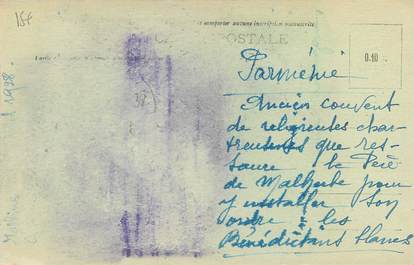 15€
comporter aucune inscription manuscrite
POSTALE
0.10
Parménie
Ancien couvent
de religieuses char-
treuses que res-
taure le Père
de Malherbe pour
y installer son
ordre : les
Bénédictins blancs
38
1928